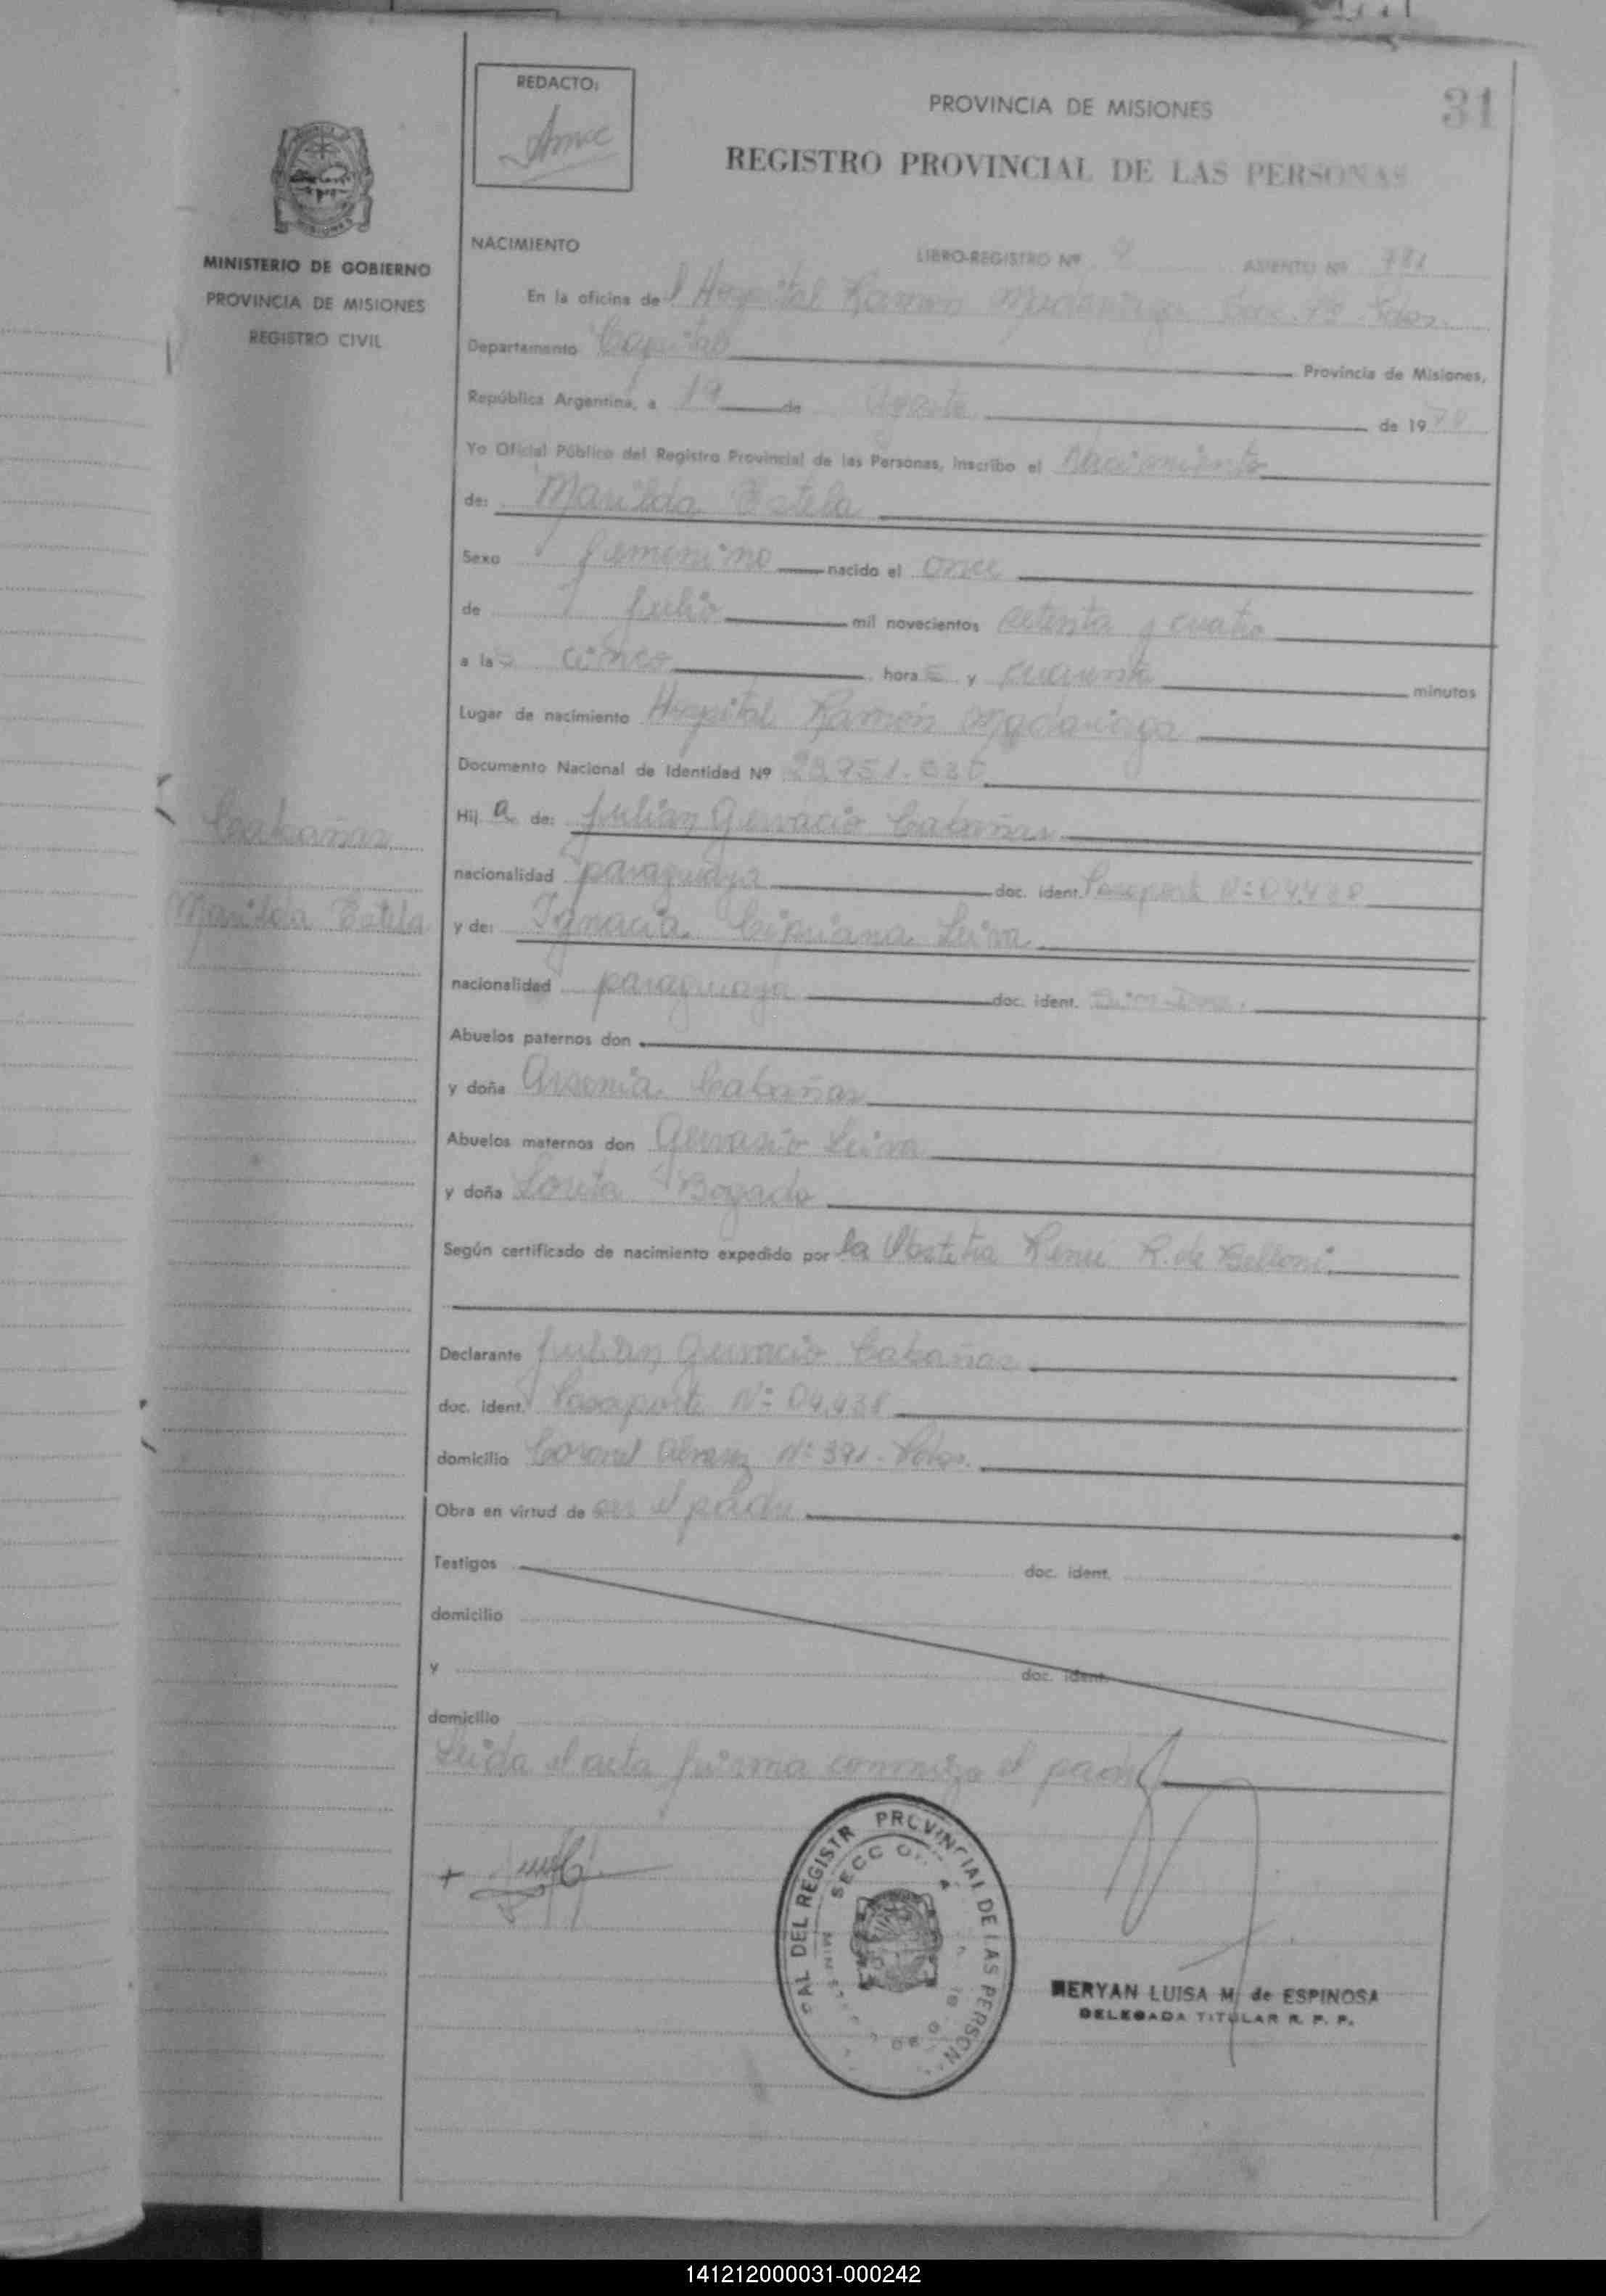 REDACTO:
PROVINCIA DE MISIONES
31
REGISTRO PROVINCIAL DE LAS PERSONAS
MINISTERIO DE GOBIERNO
PROVINCIA DE MISIONES
REGISTRO CIVIL
NACIMIENTO
LIBRO-REGISTRO Nº ASIENTO Nº 781
En la oficina del Hospital Ramón Madariaga Secc. 1ª Pdas.
Departamento Capital Provincia de Misiones,
República Argentina, a 19 de Agosto de 19
Yo Oficial Público del Registro Provincial de las Personas, inscribo el Nacimiento
de: Marilda Estela
Sexo femenino nacido el once
de Julio mil novecientos setenta y cuatro
a las cinco horas y minutos
Lugar de nacimiento Hospital Ramón Madariaga
Documento Nacional de Identidad Nº
Hija de: Julian Gervacio Cabañas
nacionalidad paraguaya doc. ident. Pasaporte Nº 04.438
Cabañas
Marilda Estela
y de: Ignacia Cipriana Leiva
nacionalidad paraguaya doc. ident.
Abuelos paternos don
y doña Arsenia Cabañas
Abuelos maternos don Gervasio Leiva
y doña Bogado
Según certificado de nacimiento expedido por la Obstetra R. de Belloni
Declarante Julian Gervacio Cabañas
doc. ident. Pasaporte Nº 04.438
domicilio Coronel Alvarez Nº 391 - Pdas.
Obra en virtud de ser el padre
Testigos doc. ident.
domicilio
y doc. ident.
domicilio
Leida el acta firma conmigo el padre
PROVINCIAL DE LAS PERSON
AL DEL REGISTR
SECC
MERYAN LUISA M. de ESPINOSA
DELEGADA TITULAR R. P. P.
141212000031-000242